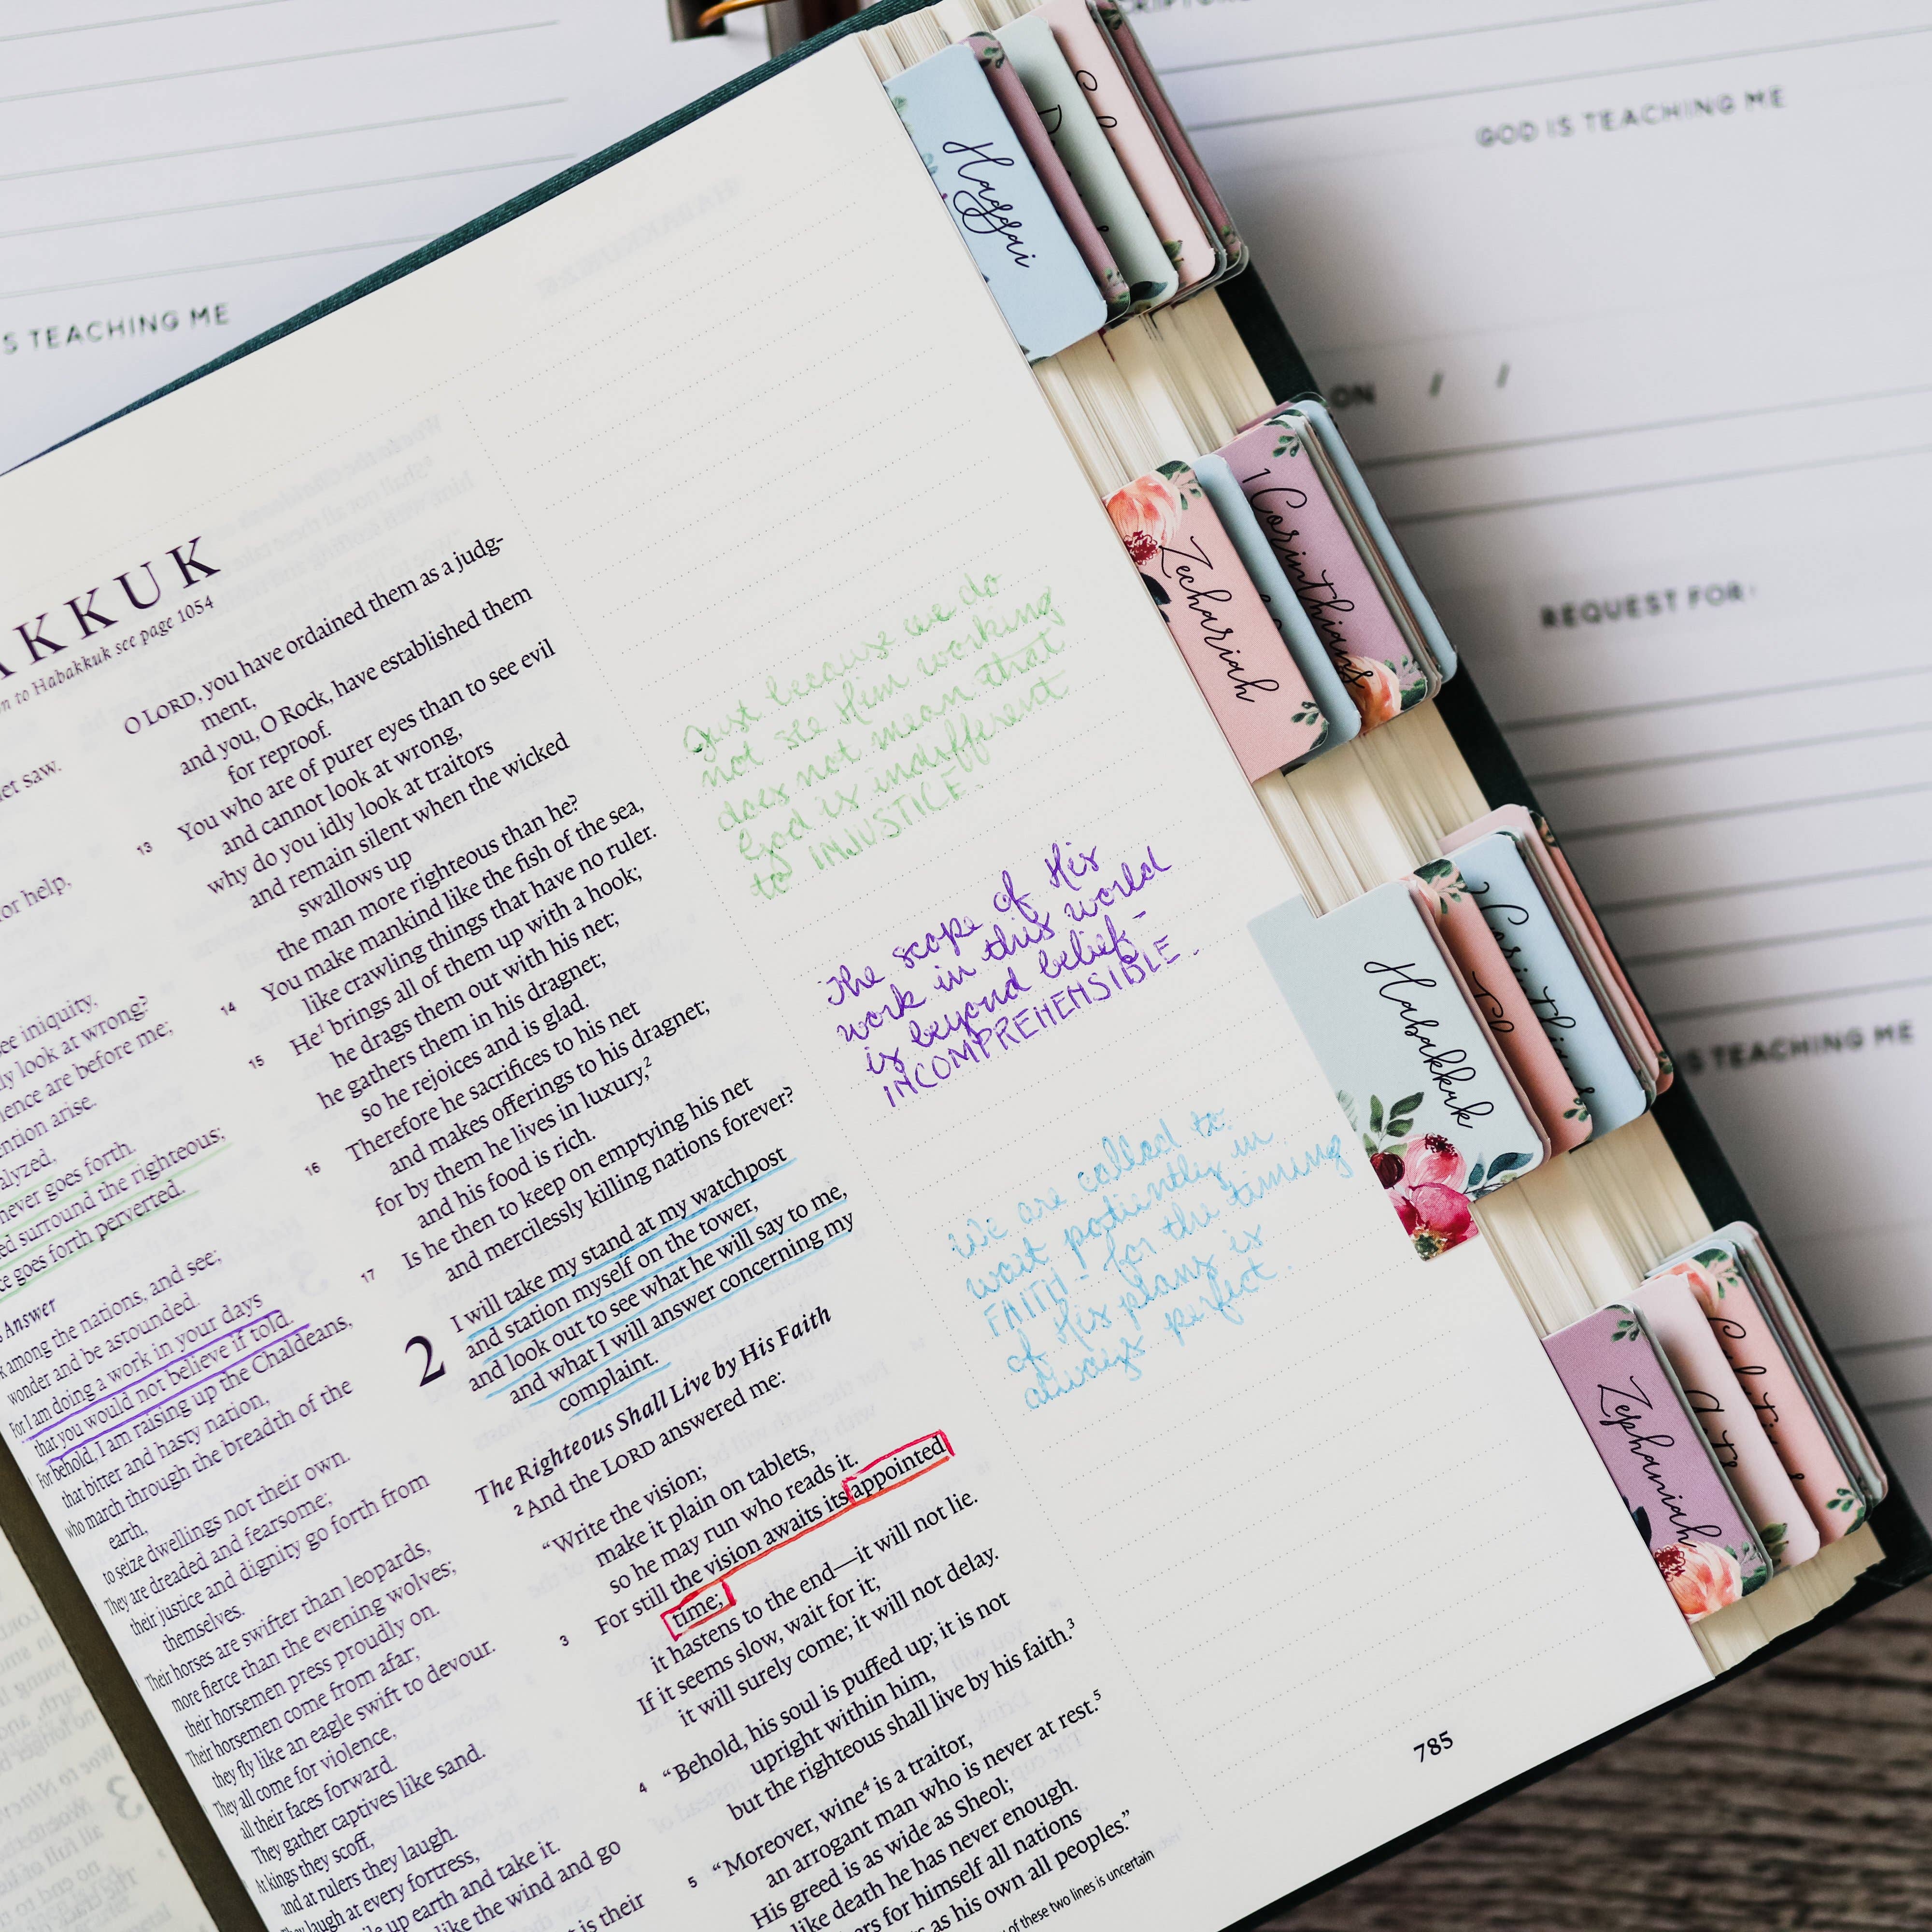 SCRIPTURE
GOD IS TEACHING ME
ON / /
REQUEST FOR:
IS TEACHING ME
S TEACHING ME
AKKUK
on to Habakkuk see page 1054
et saw.
or help,
ee iniquity,
ly look at wrong?
lence are before me;
ntion arise.
alyzed,
never goes forth.
ed surround the righteous;
ce goes forth perverted.
Answer
k among the nations, and see;
wonder and be astounded.
For I am doing a work in your days
that you would not believe if told.
For behold, I am raising up the Chaldeans,
that bitter and hasty nation,
who march through the breadth of the
earth,
to seize dwellings not their own.
They are dreaded and fearsome;
their justice and dignity go forth from
themselves.
Their horses are swifter than leopards,
more fierce than the evening wolves;
their horsemen press proudly on.
Their horsemen come from afar;
they fly like an eagle swift to devour.
They all come for violence,
all their faces forward.
They gather captives like sand.
At kings they scoff,
and at rulers they laugh.
They laugh at every fortress,
le up earth and take it.
like the wind and go
t is their
O LORD, you have ordained them as a judg-
ment,
and you, O Rock, have established them
for reproof.
13 You who are of purer eyes than to see evil
and cannot look at wrong,
why do you idly look at traitors
and remain silent when the wicked
swallows up
the man more righteous than he?
14 You make mankind like the fish of the sea,
like crawling things that have no ruler.
15 He¹ brings all of them up with a hook;
he drags them out with his net;
he gathers them in his dragnet;
so he rejoices and is glad.
16 Therefore he sacrifices to his net
and makes offerings to his dragnet;
for by them he lives in luxury,²
and his food is rich.
17 Is he then to keep on emptying his net
and mercilessly killing nations forever?
2 I will take my stand at my watchpost
and station myself on the tower,
and look out to see what he will say to me,
and what I will answer concerning my
complaint.
The Righteous Shall Live by His Faith
2 And the LORD answered me:
“Write the vision;
make it plain on tablets,
so he may run who reads it.
3 For still the vision awaits its appointed
time;
it hastens to the end—it will not lie.
If it seems slow, wait for it;
it will surely come; it will not delay.
4 “Behold, his soul is puffed up; it is not
upright within him,
but the righteous shall live by his faith.³
5 “Moreover, wine⁴ is a traitor,
an arrogant man who is never at rest.⁵
His greed is as wide as Sheol;
like death he has never enough.
ers for himself all nations
s as his own all peoples.”
of these two lines is uncertain
Just because we do
not see Him working
does not mean that
God is indifferent
to INJUSTICE.
The scope of His
work in this world
is beyond belief -
INCOMPREHENSIBLE.
We are called to
wait patiently in
FAITH - for the timing
of His plans is
always perfect.
785
Haggai
Zechariah
1 Corinthians
Habakkuk
2 Corinthians
Zephaniah